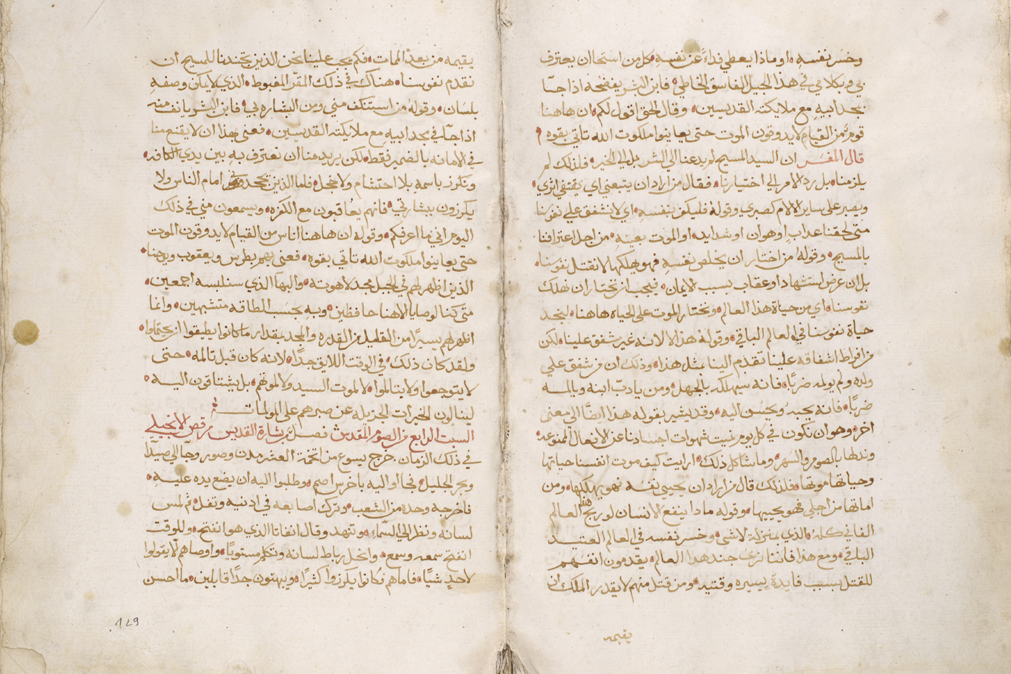 وخسر نفسه، او ماذا يعطي فداءً عن نفسه، وكل من استحا ان يعترف
بي وبكلامي في هذا الجيل الفاسق الخاطي، فابن البشر يفضحه اذا جا في
مجد ابيه مع ملايكته القديسين، وقال الحق اقول لكم ان هاهنا
قوم من القيام لا يدوقون الموت حتى يعاينوا ملكوت الله تاتي بقوه،
قال المفسر ان السيد المسيح لم يدعنا الي الشر بل الي الخير، فلذلك لم
يلزمنا، بل رد الامر الي اختيارنا، فقال من اراد ان يتبعني اي يقتفي اثري،
ويصبر على ساير الالام كصبري وقوله فليكفر بنفسه، اي لا نشفق على نفوسنا
متى لحقنا عذاب او هوان او شدايد، او الموت بعينه، من اجل اعترافنا
بالمسيح، وقوله من اختار ان يخلص نفسه فهو يهلكها، لا نقتل نفوسنا،
بل ان عرض استشهاد او عقاب بسبب الايمان، فيجب ان نختار ان نهلك
نفوسنا، اي من حياة هذا العالم، ونختار الموت على الحياة هاهنا، لنجد
حياة نفوسنا في العالم الباقي، وقوله هذا لا لانه غير شفق علينا، لكن
من افراط اشفاقه علينا تقدم الينا بمثل هذا، وذلك ان من شفق على
ولده ولم يولمه ضربًا، فانه سيهلك بالجهل، ومن يادب ابنه ويالمه
ضربًا، فانه يحبه ويحسن اليه، وقد يشير بقوله هذا ايضًا الي معنى
اخر، وهو ان نكون في كل يوم نميت شهوات اجسادنا عن الافعال الممنوعه،
ونذلها بالصوم والسهر، وما شاكل ذلك، ارايت كيف موت انفسنا حياتها
وحياتها موتها، فلذلك قال من اراد ان يحيي نفسه فهو يهلكها، ومن
اماتها من اجلي فهو يحييها، وقوله ماذا ينفع الانسان لو ربح العالم
الفاني كله، الذي بمنزلة لا شي، وخسر نفسه في العالم العتيد
الباقي، ومع هذا فاننا نرى جند هذا العالم، يقدمون انفسهم
للقتل بسبب فايدة يسيره وقتيه، ومن قتل منهم لا يقدر الملك ان
يقيمه
يقيمه من بعد الممات، فكم يجب علينا نحن الذين تجندنا للمسيح ان
نقدم نفوسنا، هناك في ذلك المغبوط، الذي لا يمكن وصفه
بلسان، وقوله من استنكف مني ومن البشاره بي، فابن البشر يانف منه
اذا جا في مجد ابيه مع ملايكته القديسين، فعنى بهذا ان لا يقنع منا
في الامانه بالضمير فقط، لكن يريد منا ان نعترف به بين يدي الكافه،
ونكرز باسمه بلا احتشام ولا خجل، فاما الذين يجحدوه امام الناس ولا
يكرزون ببشارتي، فانهم يعاقبون مع الكفره، ويسمعون مني في ذلك
اليوم اني ما اعرفكم، وقوله ان هاهنا اناس من القيام لا يدوقون الموت
حتى يعاينوا ملكوت الله تاتي بقوه، فعنى بهم بطرس ويعقوب ويوحنا،
الذين اظهر لهم في الجبل مجد لاهوته، والبها الذي سنلبسه اجمعين،
متى كنا لوصايا الاهنا حافظين، وبه بحسب الطاقه متشبهين، وانما
اظهر لهم يسيرًا من القليل من القدره والمجد بقدار ما كانوا يطيقوا ان يحتملوا،
ولقد كان ذلك، في الوقت اللايق جدًا، لانه كان قبل تالمه، حتى
لا يتوجعوا ولا يتالموا، لا لموت السيد ولا لموتهم، بل يشتاقون اليه،
لينالون الخيرات الجزيله عن صبرهم على المولمات
السبت الرابع من الصوم المقدس فصل من بشارة القديس مرقص الانجيلي
في ذلك الزمان، خرج يسوع من تخوم العشر مدن وصور وجا الي صيدا
وبحر الجليل، فجاوا اليه باخرس اصم، وطلبوا اليه ان يضع يده عليه،
فاخرجه وحده من الشعب، وترك اصابعه في اذنيه وتفل، ثم لمس
لسانه، ونظر الي السماء، وتنهد وقال انفاتا الذي هو انفتح، وللوقت
انفتح سمعه، وسمع، وانحل رباط لسانه، وتكلم مستويًا، واوصاهم الا يقولوا
لاحد شيًا، فاما هم فكانوا يكرزوا كثيرًا، ويبهتون جدًا قايلين، ما احسن
129